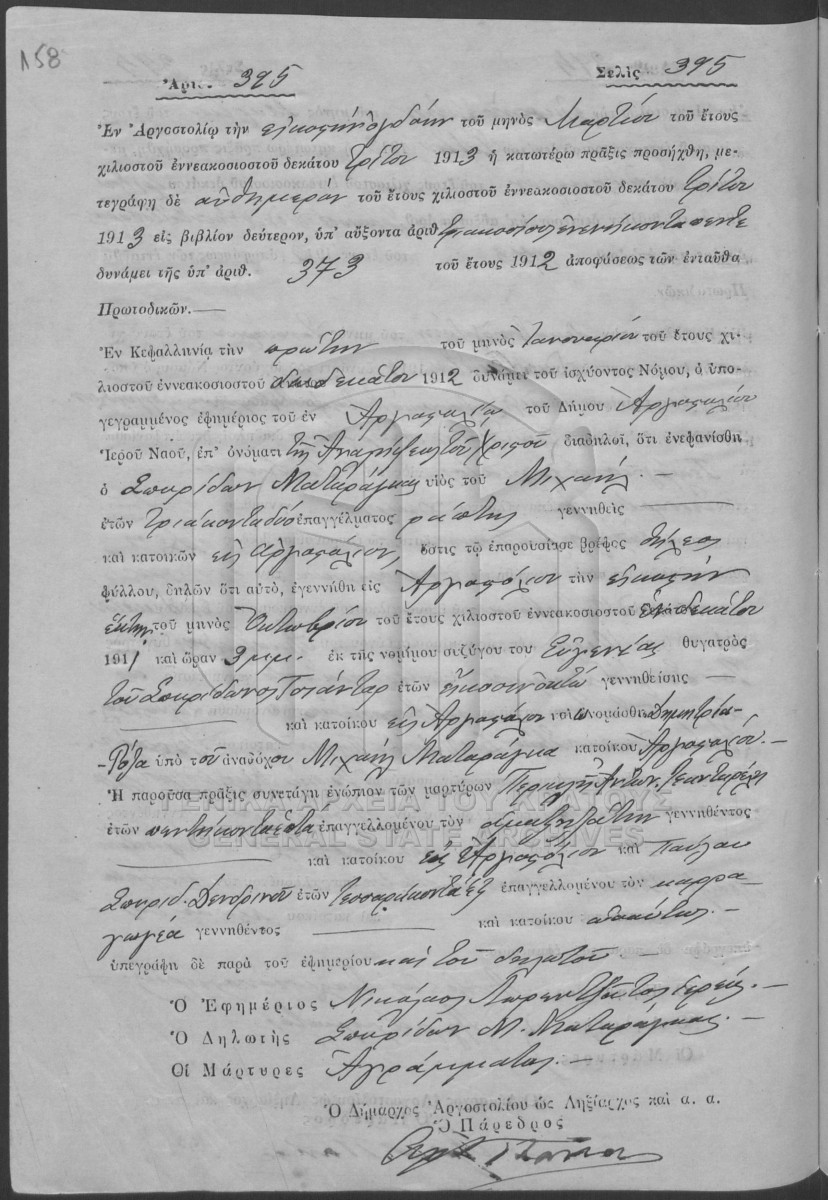 158
Ἀριθ. 395 Σελὶς 395
Ἐν Ἀργοστολίῳ τὴν εἰκοστὴν ὀγδόην τοῦ μηνὸς Μαρτίου τοῦ ἔτους
χιλιοστοῦ ἐννεακοσιοστοῦ δεκάτου τρίτου 1913 ἡ κατωτέρω πρᾶξις προσήχθη, με-
τεγράφη δὲ αὐθημερὸν τοῦ ἔτους χιλιοστοῦ ἐννεακοσιοστοῦ δεκάτου τρίτου
1913 εἰς βιβλίον δεύτερον, ὑπ' αὔξοντα ἀριθ. τριακόσια ἐνενήκοντα πέντε
δυνάμει τῆς ὑπ' ἀριθ. 373 τοῦ ἔτους 1912 ἀποφάσεως τῶν ἐνταῦθα
Πρωτοδικῶν.—
Ἐν Κεφαλληνίᾳ τὴν πρώτην τοῦ μηνὸς Ἰανουαρίου τοῦ ἔτους χι-
λιοστοῦ ἐννεακοσιοστοῦ δωδεκάτου 1912 δυνάμει τοῦ ἰσχύοντος Νόμου, ὁ ὑπο-
γεγραμμένος ἐφημέριος τοῦ ἐν Ἀργοστολίῳ τοῦ Δήμου Ἀργοστολίου
Ἱεροῦ Ναοῦ, ἐπ' ὀνόματι τῆς Ἀναλήψεως τοῦ Χριστοῦ διαδηλοῖ, ὅτι ἐνεφανίσθη
ὁ Σπυρίδων Ματαράγκας υἱὸς τοῦ Μιχαήλ.—
ἐτῶν τριάκοντα δύο ἐπαγγέλματος ράπτης γεννηθεὶς
καὶ κατοικῶν εἰς Ἀργοστόλιον, ὅστις τῷ ἐπαρουσίασε βρέφος θήλεος
φύλλου, δηλῶν ὅτι αὐτὸ, ἐγεννήθη εἰς Ἀργοστόλιον τὴν εἰκοστὴν
ἕκτην τοῦ μηνὸς Ὀκτωβρίου τοῦ ἔτους χιλιοστοῦ ἐννεακοσιοστοῦ ἑνδεκάτου
1911 καὶ ὥραν 9 μ.μ. ἐκ τῆς νομίμου συζύγου του Εὐγενίας θυγατρὸς
τοῦ Σπυρίδωνος ἐτῶν εἴκοσι ὀκτὼ γεννηθείσης
καὶ κατοίκου εἰς Ἀργοστόλιον καὶ ὠνομάσθη Δημητρία-
-Ρόζα ὑπὸ τοῦ ἀναδόχου Μιχαὴλ Ματαράγκα κατοίκου Ἀργοστολίου.—
Ἡ παροῦσα πρᾶξις συνετάγη ἐνώπιον τῶν μαρτύρων Περικλῆ Ἀντων.
ἐτῶν πεντήκοντα ἑπτὰ ἐπαγγελλομένου τὸν ἁμαξηλάτην γεννηθέντος
καὶ κατοίκου εἰς Ἀργοστόλιον καὶ Παύλου
Σπυρίδ. Δενδρινοῦ ἐτῶν τεσσαράκοντα ἓξ ἐπαγγελλομένου τὸν καρρα-
γωγέα γεννηθέντος καὶ κατοίκου
ὑπεγράφη δὲ παρὰ τοῦ ἐφημερίου καὶ τοῦ δηλωτοῦ.—
Ὁ Ἐφημέριος Νικόλαος ἱερεύς.—
Ὁ Δηλωτὴς Σπυρίδων Μ. Ματαράγκας.—
Οἱ Μάρτυρες Ἀγράμματοι.—
Ὁ Δήμαρχος Ἀργοστολίου ὡς Ληξίαρχος καὶ α. α.
Ὁ Πάρεδρος
ΓΕΝΙΚΑ ΑΡΧΕΙΑ ΤΟΥ ΚΡΑΤΟΥΣ
GENERAL STATE ARCHIVES